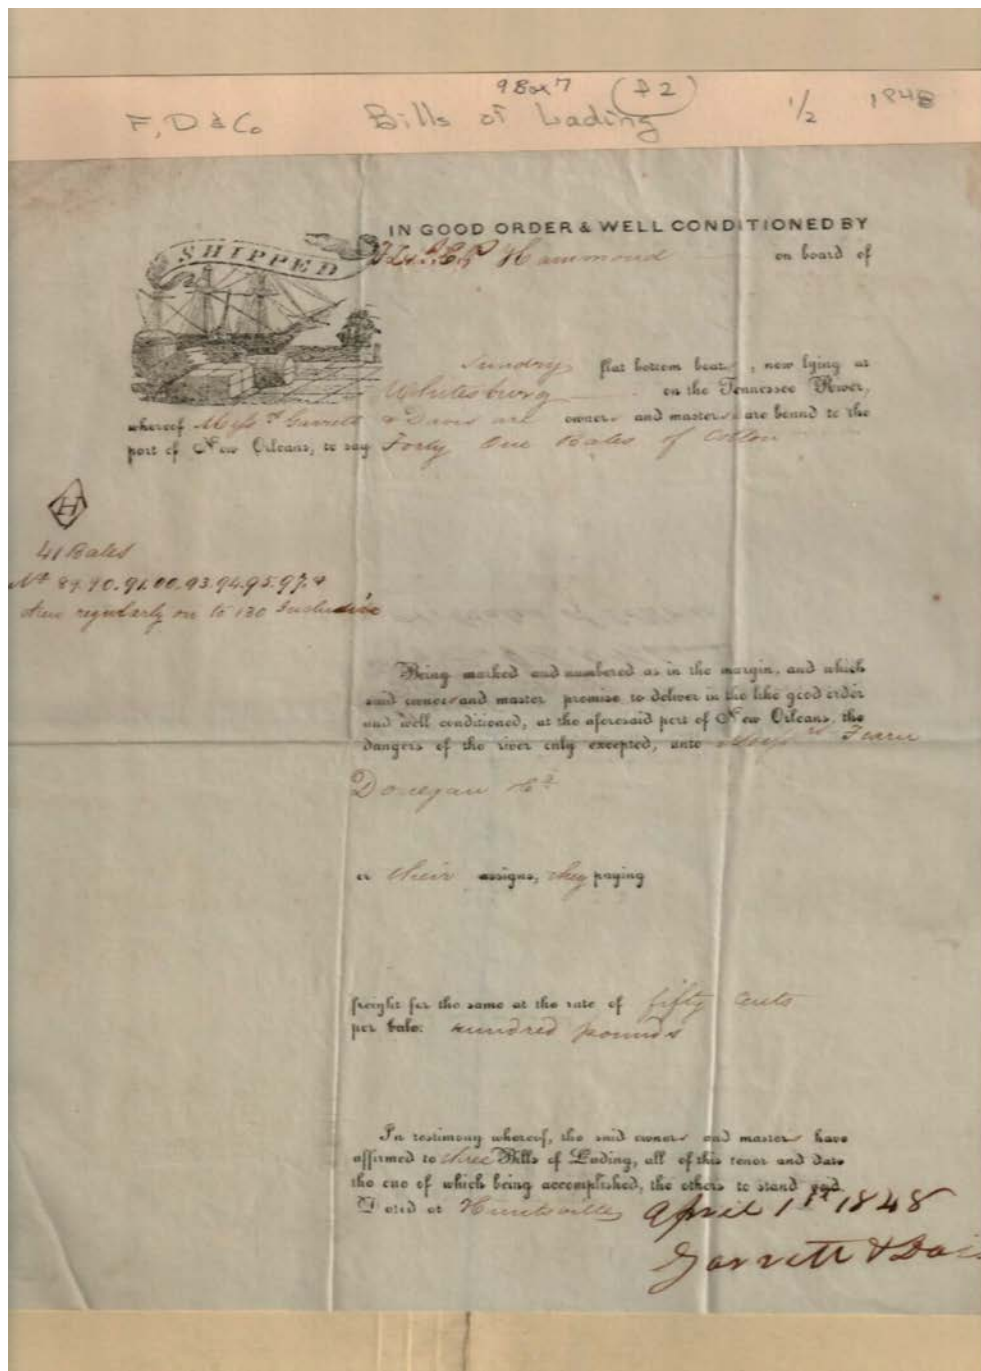 9 Box 7 (D2)
F, D & Co Bills of Lading 1/2 1848
SHIPPED
IN GOOD ORDER & WELL CONDITIONED BY
Hammond on board of
Sundry flat bottom boats, now lying at
Whitesburg on the Tennessee River,
whereof Messrs Garrett & Davis are owners and masters are bound to the
port of New Orleans, to say Forty One Bales of Cotton
H
41 Bales
No 89.90.91.00.93.94.95.97.&
then regularly on to 130 Inclusive
Being marked and numbered as in the margin, and which
said owners and master promise to deliver in the like good order
and well conditioned, at the aforesaid port of New Orleans, the
dangers of the river only excepted, unto Messrs Fearn
Donegan & Co
or their assigns, they paying
freight for the same at the rate of fifty Cents
per bale: hundred pounds
In testimony whereof, the said owners and masters have
affirmed to three Bills of Lading, all of this tenor and date
the one of which being accomplished, the others to stand void.
Dated at Huntsville April 1st 1848
Garrett & Davis